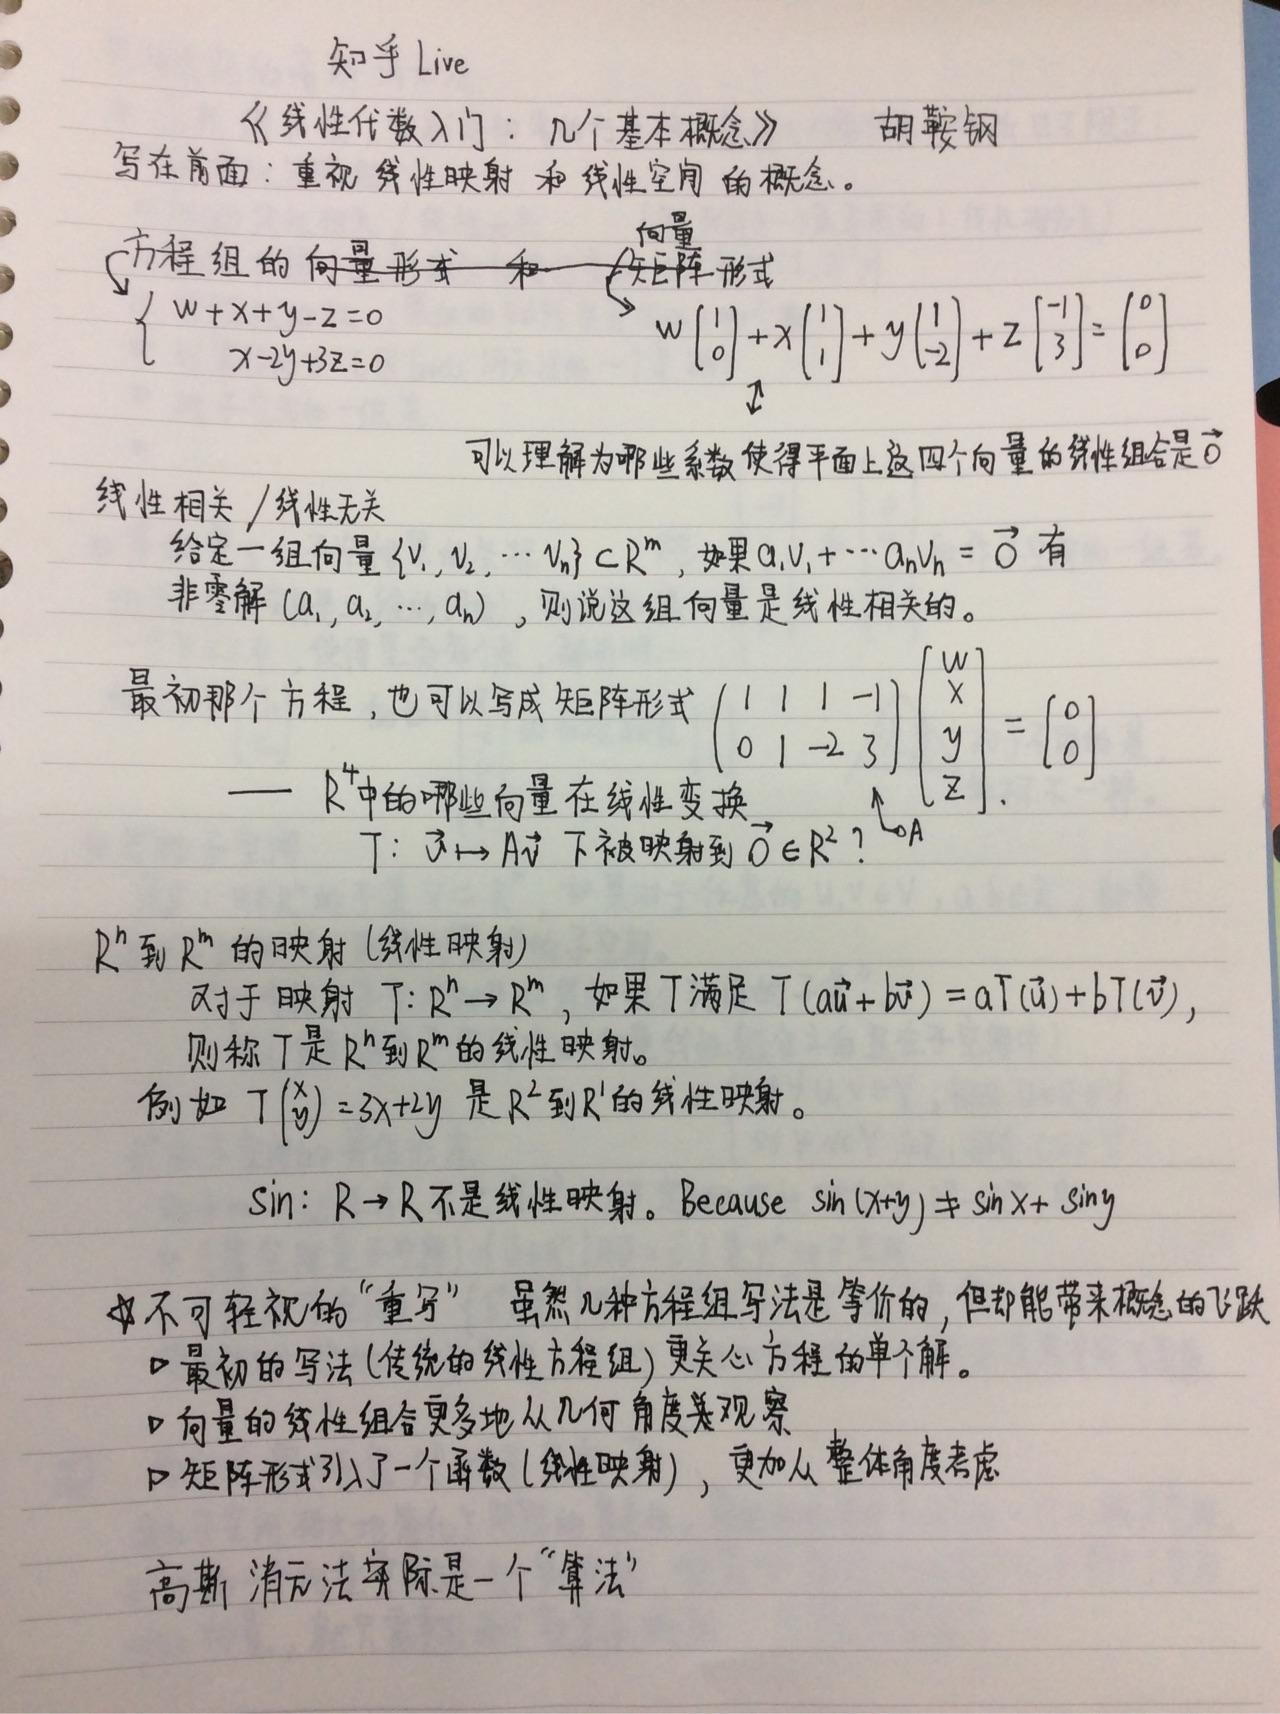 知乎 Live
《线性代数入门：几个基本概念》 胡鞍钢
写在前面：重视 线性映射 和 线性空间 的概念。
向量
方程组的 向量形式 和 矩阵形式
{ w+x+y-z=0
x-2y+3z=0
w[1 0]+x[1 1]+y[1 -2]+z[-1 3]=[0 0]
可以理解为哪些系数使得平面上这四个向量的线性组合是0⃗
线性相关 / 线性无关
给定一组向量{v₁, v₂, … vₙ}⊂Rᵐ, 如果a₁v₁+…aₙvₙ = 0⃗ 有
非零解(a₁, a₂, …, aₙ), 则说这组向量是线性相关的。
最初那个方程, 也可以写成 矩阵形式 (1 1 1 -1 0 1 -2 3) [w x y z] = [0 0].
—— R⁴中的哪些向量在线性变换
A
T: v⃗ ↦ Av⃗ 下被映射到 0⃗ ∈ R²?
Rⁿ到Rᵐ的映射(线性映射)
对于映射 T: Rⁿ→Rᵐ, 如果T满足 T(au⃗+bv⃗)=aT(u⃗)+bT(v⃗),
则称T是Rⁿ到Rᵐ的线性映射。
例如 T(x y)=3x+2y 是R²到R¹的线性映射。
sin: R→R不是线性映射。Because sin(x+y)≠sinx+siny
☆不可轻视的“重写” 虽然几种方程组写法是等价的, 但却能带来概念的飞跃
▷最初的写法(传统的线性方程组)更关心方程的单个解。
▷向量的线性组合更多地从几何角度来观察
▷矩阵形式引入了一个函数(线性映射), 更加从整体角度考虑
高斯消元法实际是一个“算法”